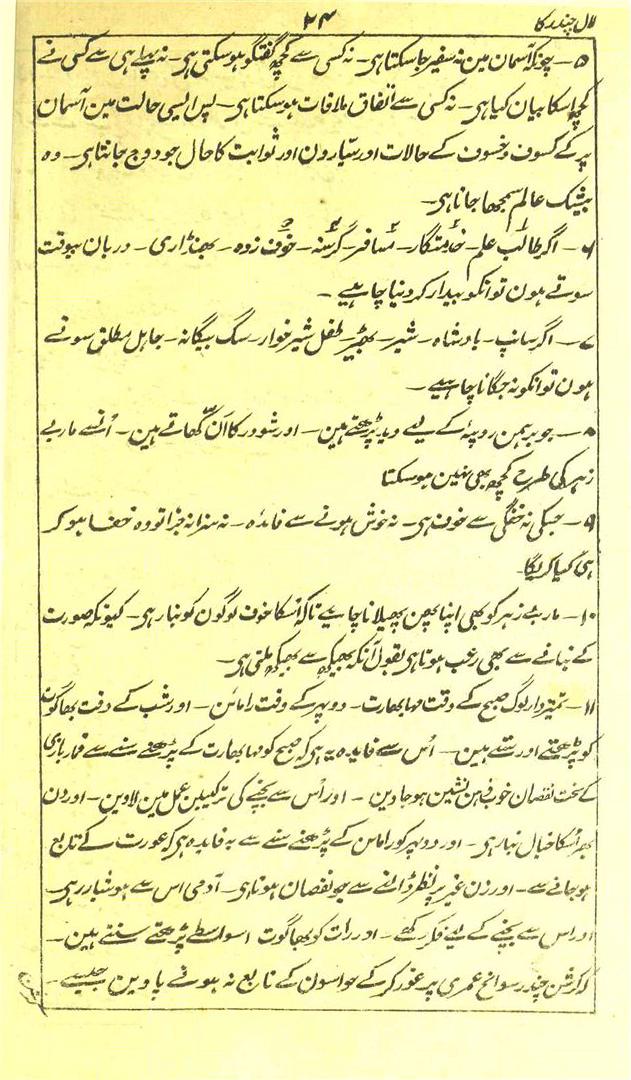 لال چندرکا
۲۴
۵ — چونکہ آسمان مین نہ سفیر جا سکتا ہی ۔ نہ کسی سے کچھ گفتگو ہو سکتی ہی ۔ نہ پہلے ہی سے کسی نے
کچھ اسکا بیان کیا ہی ۔ نہ کسی سے اتفاق ملاقات ہو سکتا ہی ۔ پس ایسی حالت مین آسمان
پر کے کسوف و خسوف کے حالات اور سیّارون اور ثوابت کا حال جو دوج جانتا ہی ۔ وہ
بیشک عالم سمجھا جاتا ہی ۔
۶ — اگر طالب علم ۔ خدمتگار ۔ مسافر ۔ گرسنہ ۔ خوف زدہ ۔ بھنڈاری ۔ دربان بیوقت
سوتے ہون تو انکو بیدار کر دینا چاہیے ۔
۷ — اگر سانپ ۔ بادشاہ ۔ شیر ۔ بھیڑ ۔ طفل شیر خوار ۔ سگ بیگانہ ۔ جاہل مطلق سوتے
ہون تو انکو نہ جگانا چاہیے ۔
۸ — جو برہمن روپیہ کے لیے وید پڑھتے ہین ۔ اور شودر کا اَنّ کھاتے ہین ۔ اُنسے مار بے
زہر کی طرح کچھ بھی نہین ہو سکتا
۹ — جسکی نہ خفگی سے خوف ہی ۔ نہ خوش ہونے سے فائدہ ۔ نہ سزا نہ جزا تو وہ خفا ہو کر
ہی کیا کریگا ۔
۱۰ — مار بے زہر کو بھی اپنا پھن پھیلانا چاہیے تاکہ اُسکا خوف لوگون کو بنا رہی ۔ کیونکہ صورت
کے بنانے سے بھی رعب ہوتا ہی بقول آنکہ بھیکھ سے بھیکھ ملتی ہی ۔
۱۱ — تمیزدار لوگ صبح کے وقت مہا بھارت ۔ دوپہر کے وقت رامائن ۔ اور شب کے وقت بھاگوت
کو پڑھتے اور سنتے ہین ۔ اُس سے فایدہ یہ ہی کہ صبح کو مہا بھارت کے پڑھنے سننے سے قمار بازی
کے سخت نقصان خوب ذہن نشین ہو جاوین ۔ اور اُس سے بچنے کی ترکیبین عمل مین لاوین ۔ اور دن
بھر اُسکا خیال بنا رہی ۔ اور دوپہر کو رامائن کے پڑھنے سننے سے یہ فایدہ ہی کہ عورت کے تابع
ہو جانے سے ۔ اور زن غیر پر نظر ڈالنے سے جو نقصان ہوتا ہی ۔ آدمی اس سے ہوشیار رہی ۔
اور اس سے بچنے کے لیے فکر رکھے ۔ اور رات کو بھاگوت اسواسطے پڑھتے سنتے ہین ۔
کہ کرشن چندر سوانح عمری پر غور کر کے حواسون کے تابع نہ ہونے پاوین جیسے ۔